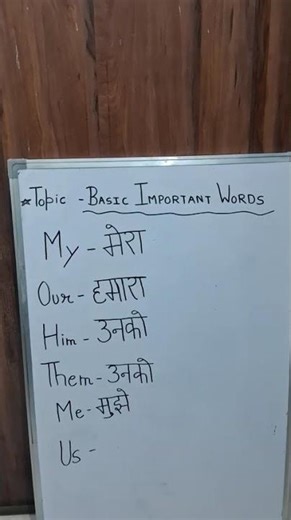 *Topic - BASIC IMPORTANT WORDS
My - मेरा
Our - हमारा
Him - उनको
Them - उनको
Me - मुझे
Us -